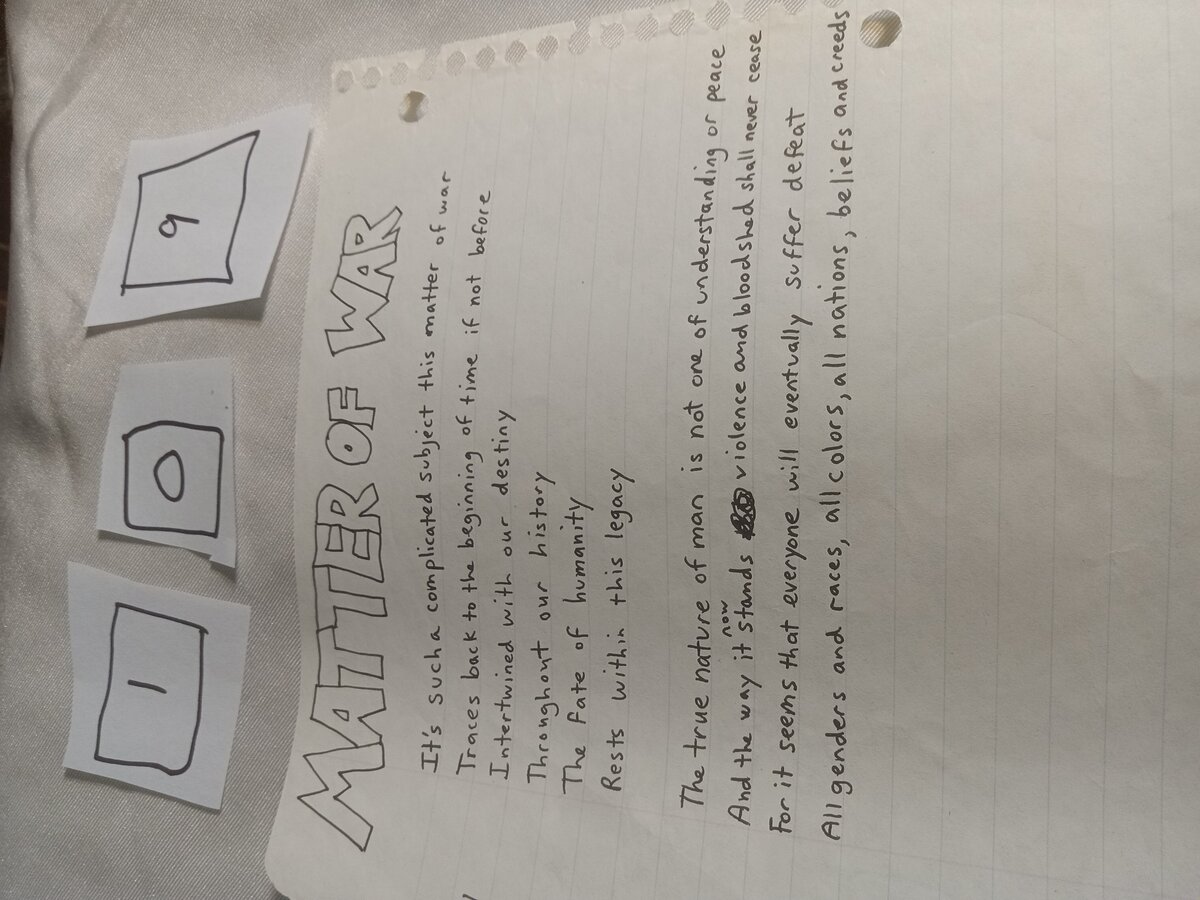 1 0 9
MATTER OF WAR
It's such a complicated subject this matter of war
Traces back to the beginning of time if not before
Intertwined with our destiny
Throughout our history
The fate of humanity
Rests within this legacy
The true nature of man is not one of understanding or peace
And the way it now stands violence and bloodshed shall never cease
For it seems that everyone will eventually suffer defeat
All genders and races, all colors, all nations, beliefs and creeds